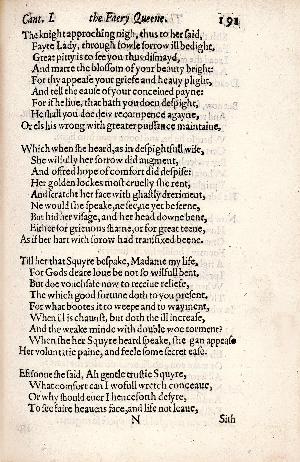 Cant. I. the Faery Queene. 191
The knight approching nigh, thus to her said,
Fayre Lady, through fowle sorrow ill bedight,
Great pitty is to see you thus dismayd,
And marre the blossom of your beauty bright:
For thy appease your griefe and heauy plight,
And tell the cause of your conceiued payne:
For if he liue, that hath you doen despight,
He shall you doe dew recompence agayne,
Or els his wrong with greater puissance maintaine.
Which when she heard, as in despightfull wise,
She wilfully her sorrow did augment,
And offred hope of comfort did despise:
Her golden lockes most cruelly she rent,
And scratcht her face with ghastly dreriment,
Ne would she speake, ne see, ne yet be seene,
But hid her visage, and her head downe bent,
Either for grieuous shame, or for great teene,
As if her hart with sorow had transfixed beene.
Till her that Squyre bespake, Madame my liefe,
For Gods deare loue be not so wilfull bent,
But doe vouchsafe now to receiue reliefe,
The which good fortune doth to you present,
For what bootes it to weepe and to wayment,
When ill is chaunst, but doth the ill increase,
And the weake minde with double woe torment?
When she her Squyre heard speake, she gan appease
Her voluntarie paine, and feele some secret ease.
Eftsoone she said, Ah gentle trustie Squyre,
What comfort can I wofull wretch conceaue,
Or why should euer I henceforth desyre,
To see faire heauens face, and life not leaue,
N Sith